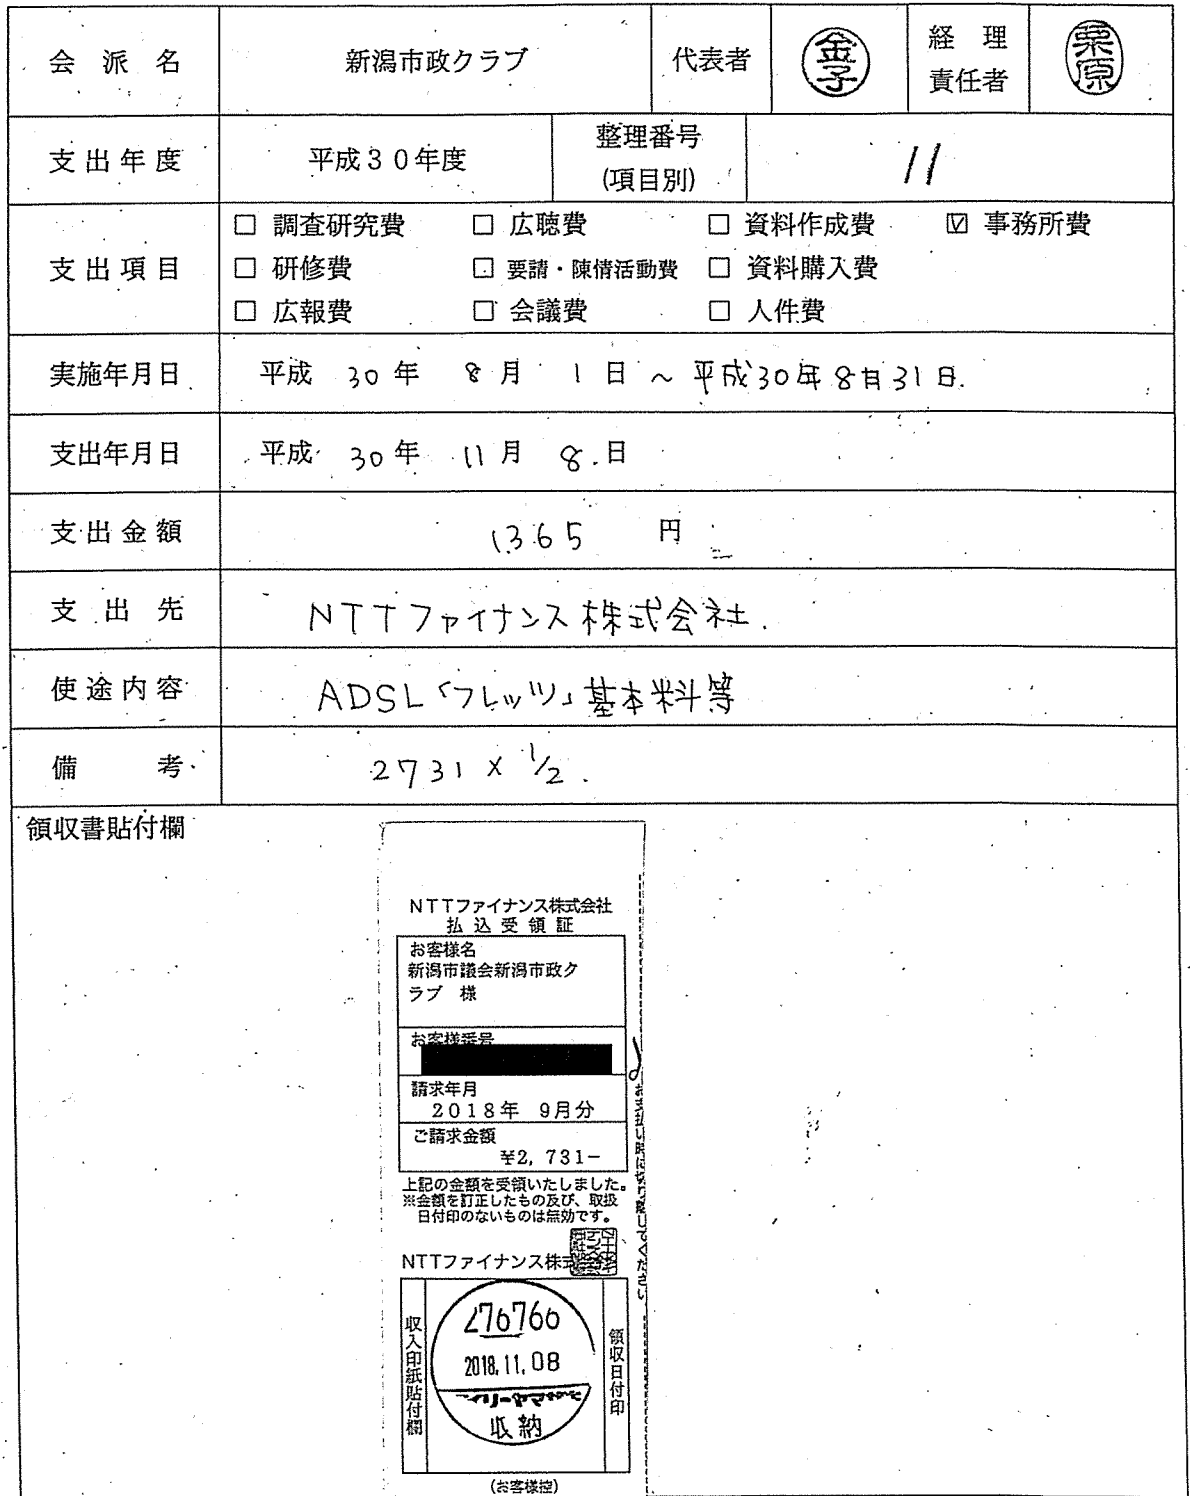 会派名 新潟市政クラブ 代表者 金子 経理責任者 栗原
支出年度 平成30年度 整理番号(項目別) 11
支出項目
□ 調査研究費 □ 広聴費 □ 資料作成費 ☑ 事務所費
□ 研修費 □ 要請・陳情活動費 □ 資料購入費
□ 広報費 □ 会議費 □ 人件費
実施年月日 平成 30年 8月 1日 ~ 平成30年8月31日.
支出年月日 平成 30年 11月 8.日
支出金額 1365 円
支出先 NTTファイナンス株式会社.
使途内容 ADSL「フレッツ」基本料等
備考 2731 × 1/2.
領収書貼付欄
NTTファイナンス株式会社
払込受領証
お客様名
新潟市議会新潟市政ク
ラブ 様
お客様番号
請求年月
2018年 9月分
ご請求金額
¥2,731−
上記の金額を受領いたしました。
※金額を訂正したもの及び、取扱
日付印のないものは無効です。
NTTファイナンス株式会社
収入印紙貼付欄
276766
2018.11.08
収納
領収日付印
(お客様控)
お支払い時に切り離してください